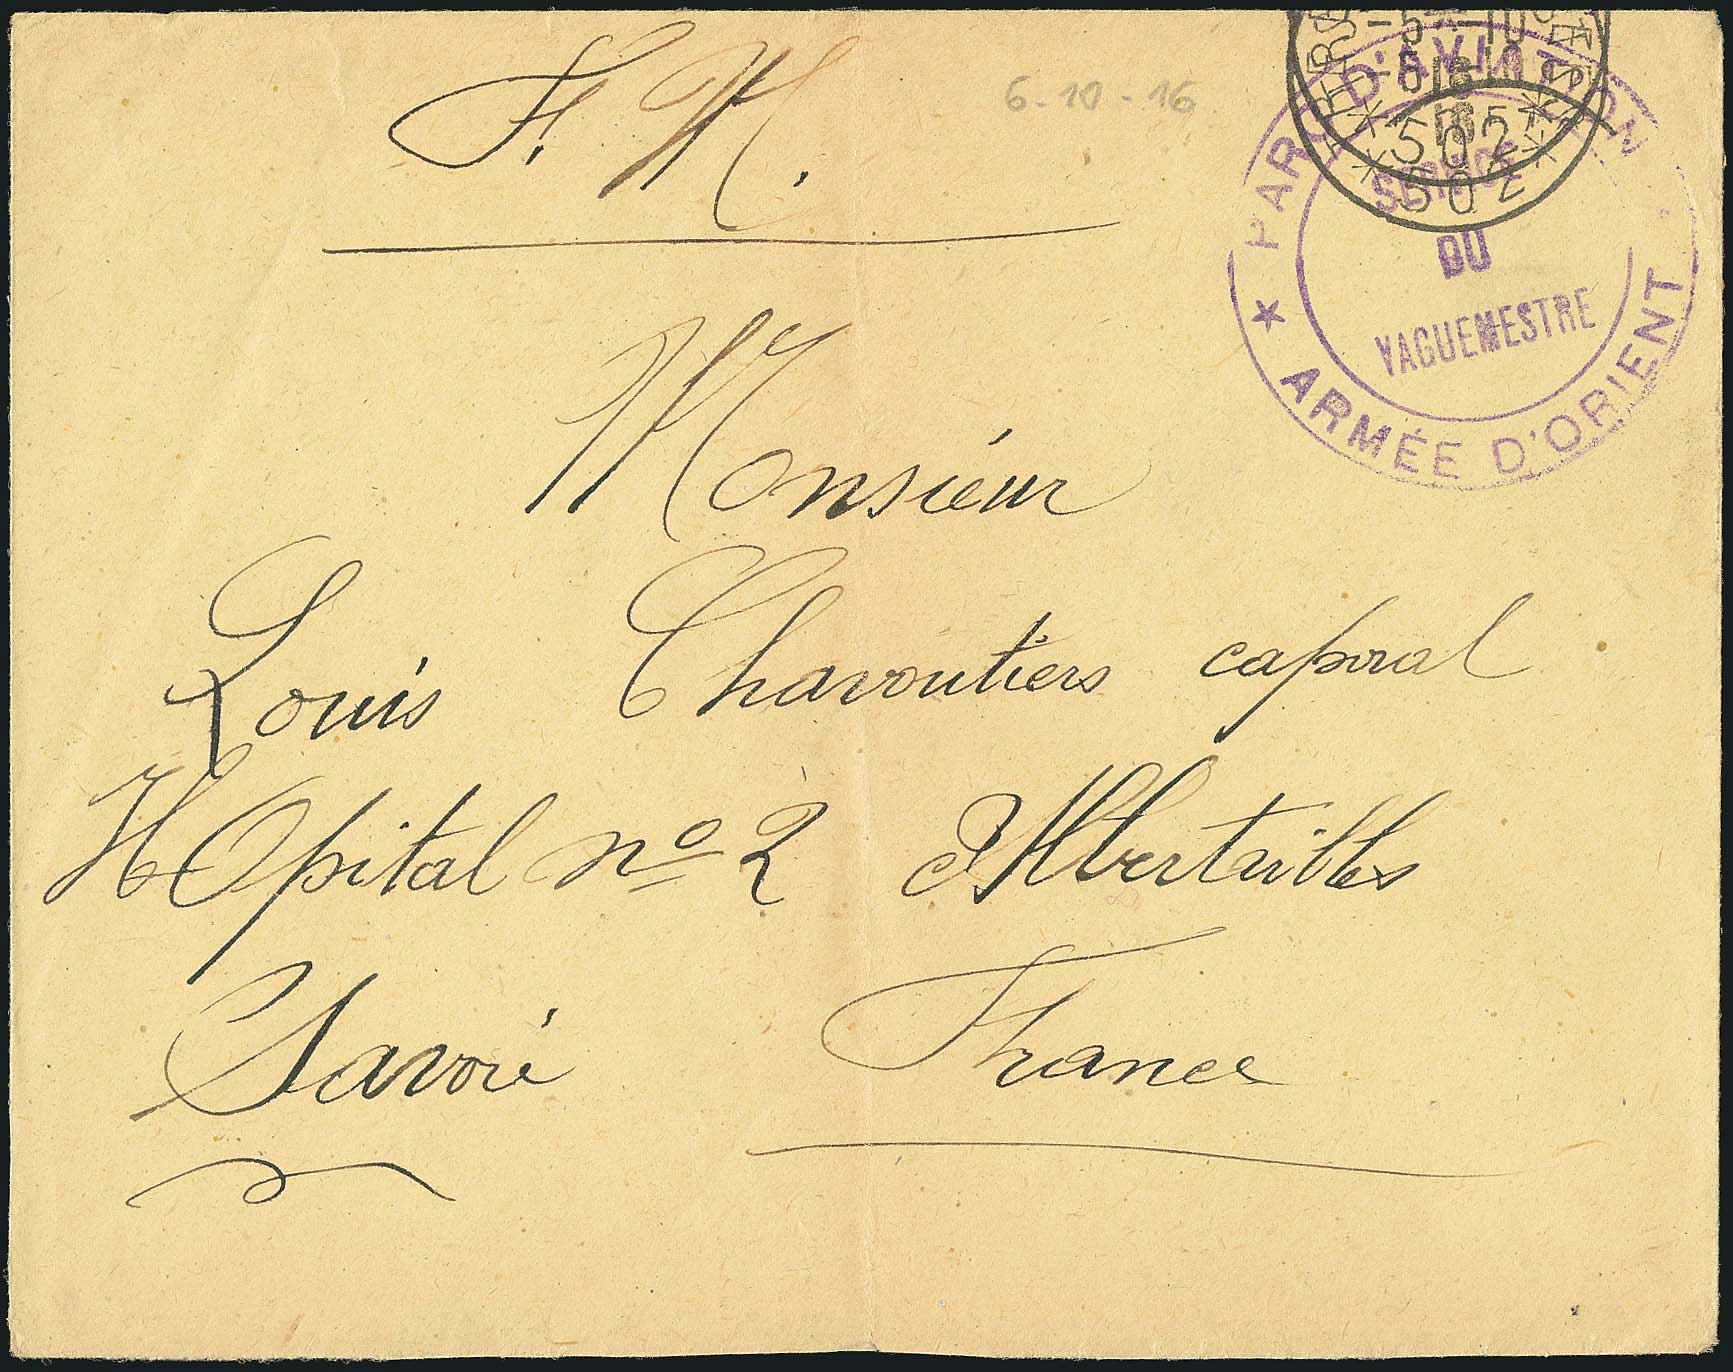 F. M.
6-10-16
PARC D'AVIATION
SERVICE
DU
VAGUEMESTRE
★ ARMÉE D'ORIENT
-5-10
-6-10
16
16
*502*
*502*
Monsieur
Louis Chavoutiers caporal
Hôpital no 2 Albertvilles
Savoie France